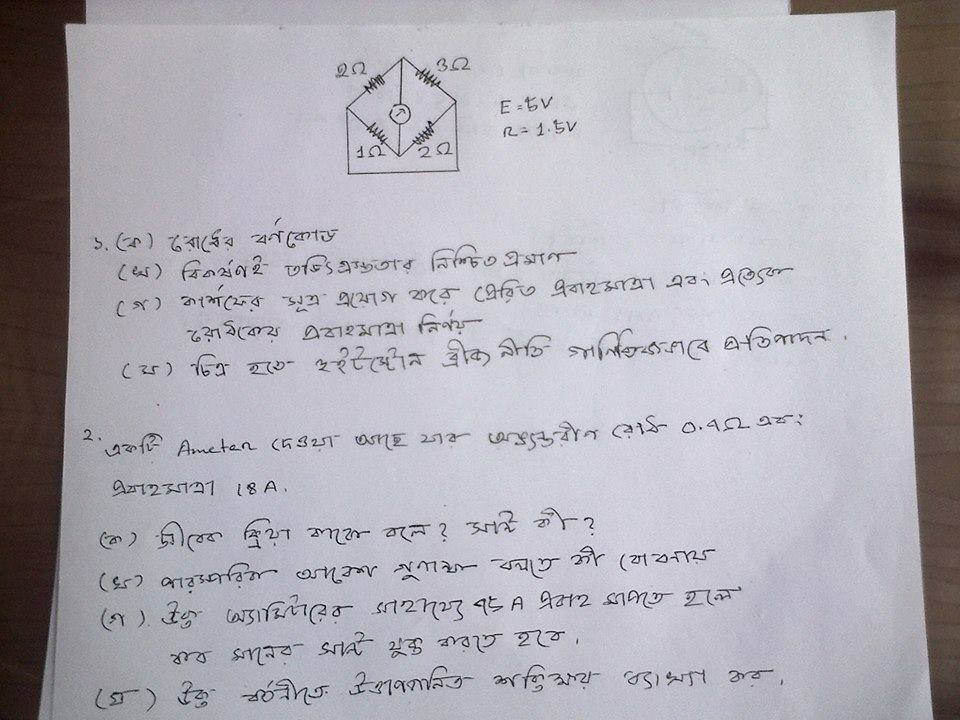 2Ω 3Ω
E = 5V
1Ω 2Ω
r = 1.5V
১. (ক) রোধের বর্ণকোড
(খ) বিকর্ষণই তড়িৎগ্রস্ততার নিশ্চিত প্রমাণ
(গ) কার্শফের সূত্র প্রয়োগ করে প্রেরিত প্রবাহমাত্রা এবং প্রত্যেক
রোধকের প্রবাহমাত্রা নির্ণয়
(ঘ) চিত্র হতে হুইটস্টোন ব্রীজ নীতি গাণিতিকভাবে প্রতিপাদন.
2. একটি Ameter দেওয়া আছে যার অভ্যন্তরীণ রোধ 0.9Ω এবং
প্রবাহমাত্রা 18A.
(ক) সীবেক ক্রিয়া কাকে বলে? সান্ট কী?
(খ) পারস্পরিক আবেশ গুণাঙ্ক বলতে কী বোঝায়
(গ). উক্ত অ্যামিটারের সাহায্যে 95 A প্রবাহ মাপতে হলে
কত মানের সান্ট যুক্ত করতে হবে.
(ঘ) উক্ত বর্তনীতে শক্তিক্ষয় ব্যাখ্যা কর.